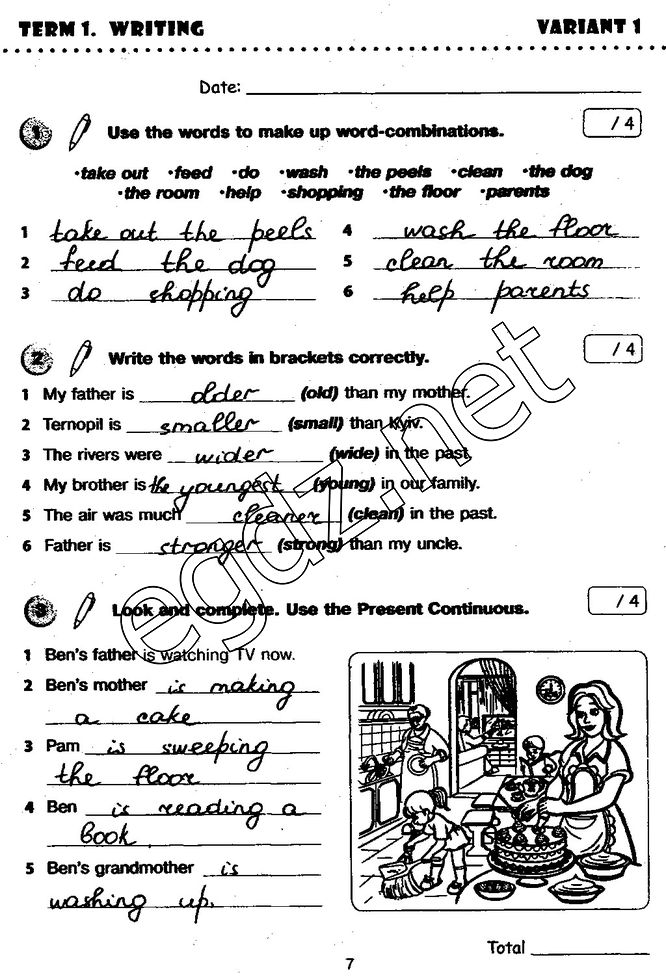 TERM 1. WRITING VARIANT 1
Date:
1 Use the words to make up word-combinations. / 4
•take out •feed •do •wash •the peels •clean •the dog
•the room •help •shopping •the floor •parents
1 take out the peels 4 wash the floor
2 feed the dog 5 clean the room
3 do shopping 6 help parents
2 Write the words in brackets correctly. / 4
1 My father is older (old) than my mother.
2 Ternopil is smaller (small) than Kyiv.
3 The rivers were wider (wide) in the past.
4 My brother is the youngest (young) in our family.
5 The air was much cleaner (clean) in the past.
6 Father is stronger (strong) than my uncle.
3 Look and complete. Use the Present Continuous. / 4
1 Ben's father is watching TV now.
2 Ben's mother is making
a cake
3 Pam is sweeping
the floor
4 Ben is reading a
book.
5 Ben's grandmother is
washing up.
Total
7
egdz.net